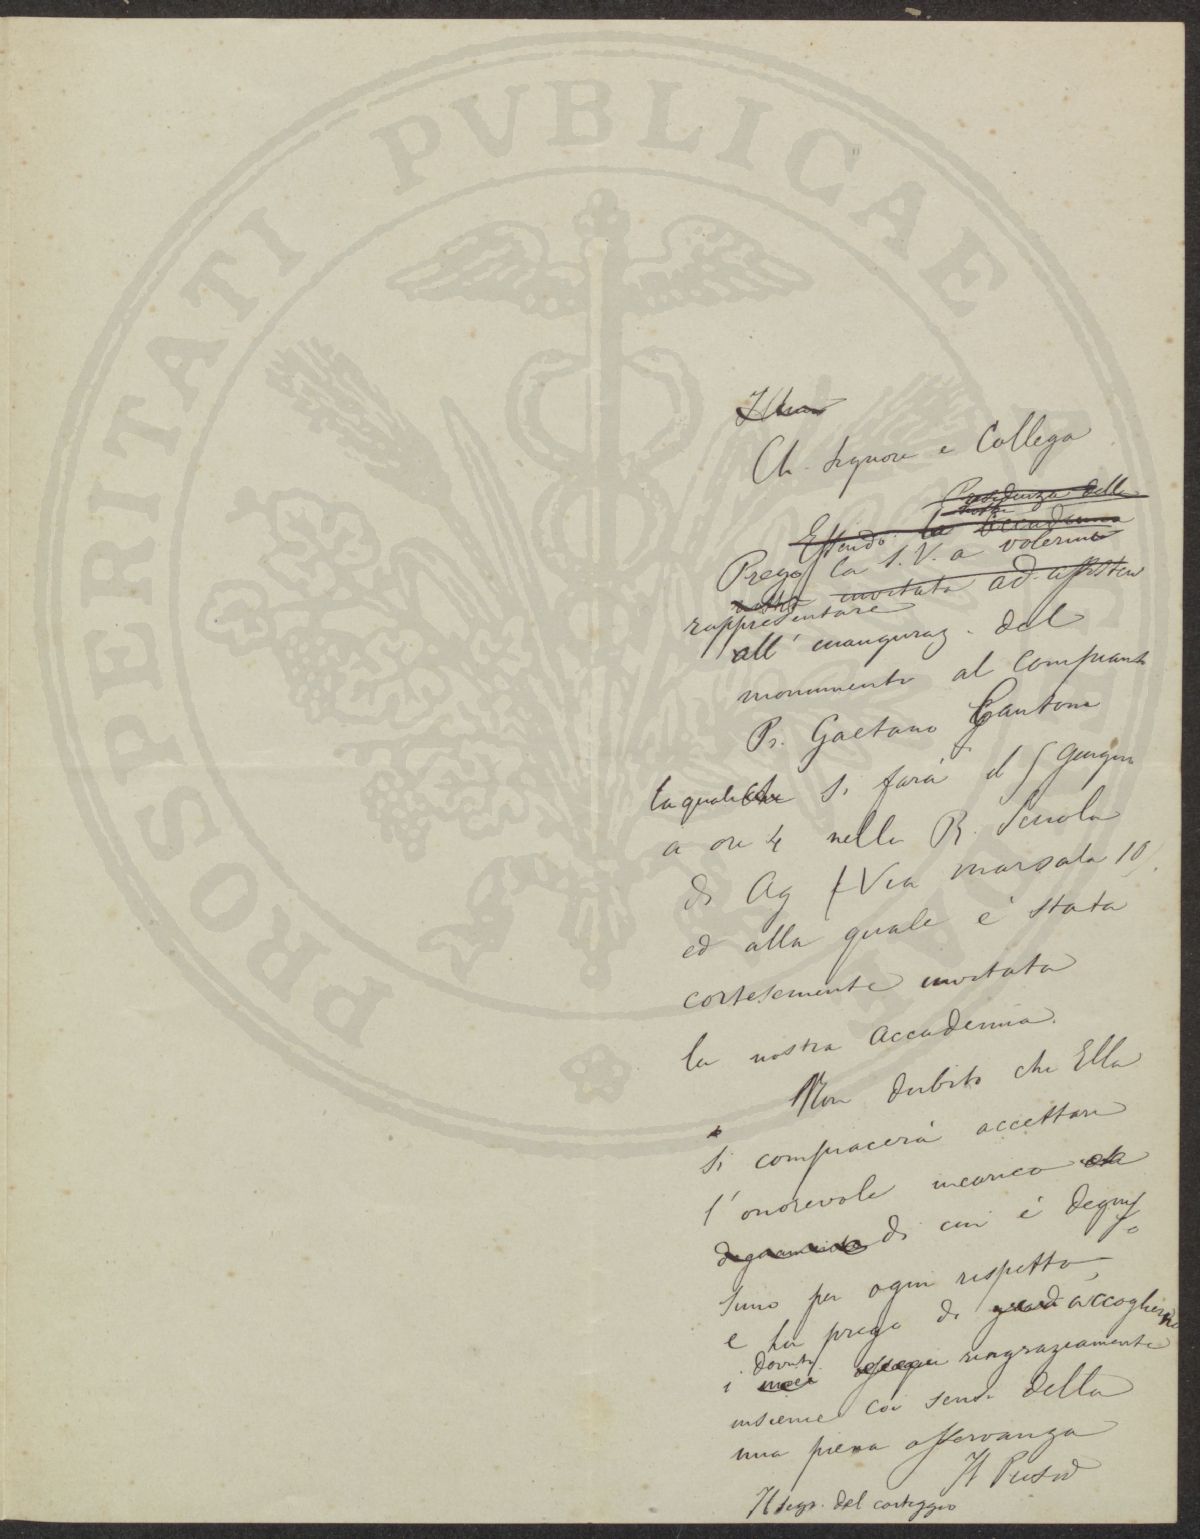 Ch. Signore e Collega
Presidenza della
nostra
Essendo la Accademia
Prego la S. V. a volermi
nostra invitata ad assistere
rappresentare
all' inauguraz. del
monumento al compianto
Pr. Gaetano Cantoni
la quale che si farà il 5 Giugno
a ore 4 nella R. Scuola
di Ag (Via Marsala 10)
ed alla quale è stata
cortesemente invitata
la nostra Accademia.
Non dubito che Ella
si compiacerà accettare
l'onorevole incarico
degnamente di cui è degnis
simo per ogni rispetto,
e La prego di accogliere
dovuti
i miei ringraziamenti
insieme coi sensi della
mia piena osservanza
Il Presid
Il segr. del carteggio
PROSPERITATI PVBLICAE